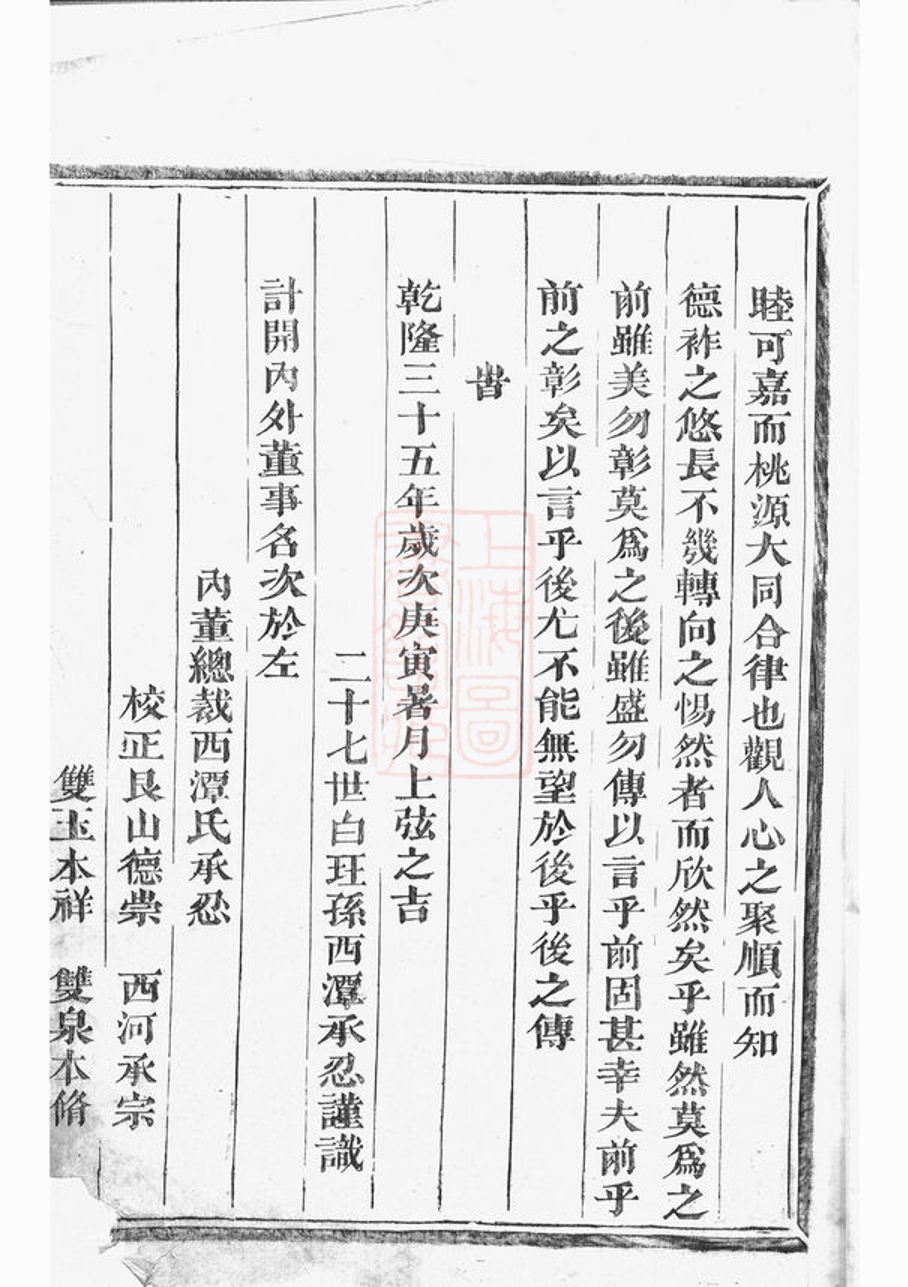 睦可嘉而桃源大同合律也觀人心之聚順而知
德祚之悠長不幾轉向之惕然者而欣然矣乎雖然莫爲之
前雖美勿彰莫爲之後雖盛勿傳以言乎前固甚幸夫前乎
前之彰矣以言乎後尤不能無望於後乎後之傳
旹
乾隆三十五年歲次庚寅暑月上弦之吉
二十七世白玨孫西潭承忍謹識
計開內外董事名次於左
內董總裁西潭氏承忍
校正艮山德崇　西河承宗
雙玉本祥　雙泉本脩
上海圖